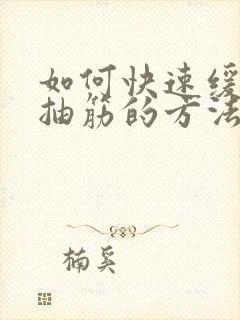 如何快速缓
抽筋的方法
楠奚